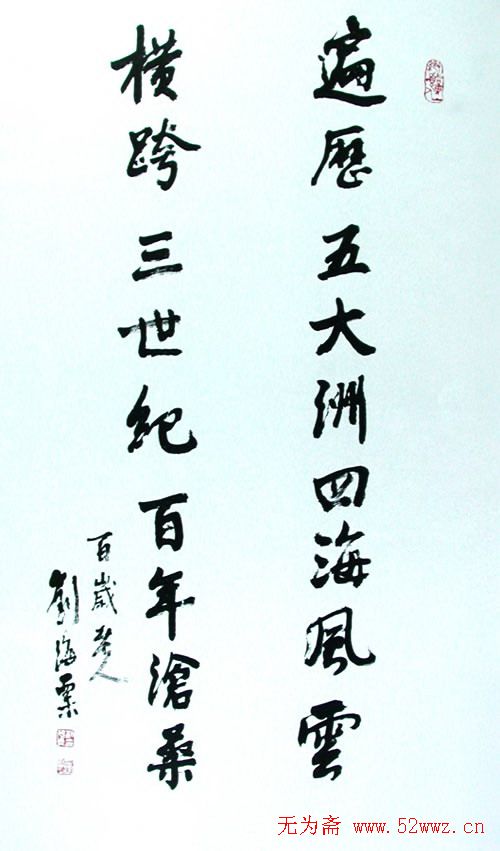 遍歷五大洲四海風雲
橫跨三世紀百年滄桑
百歲老人
劉海粟
无为斋 www.52wwz.cn